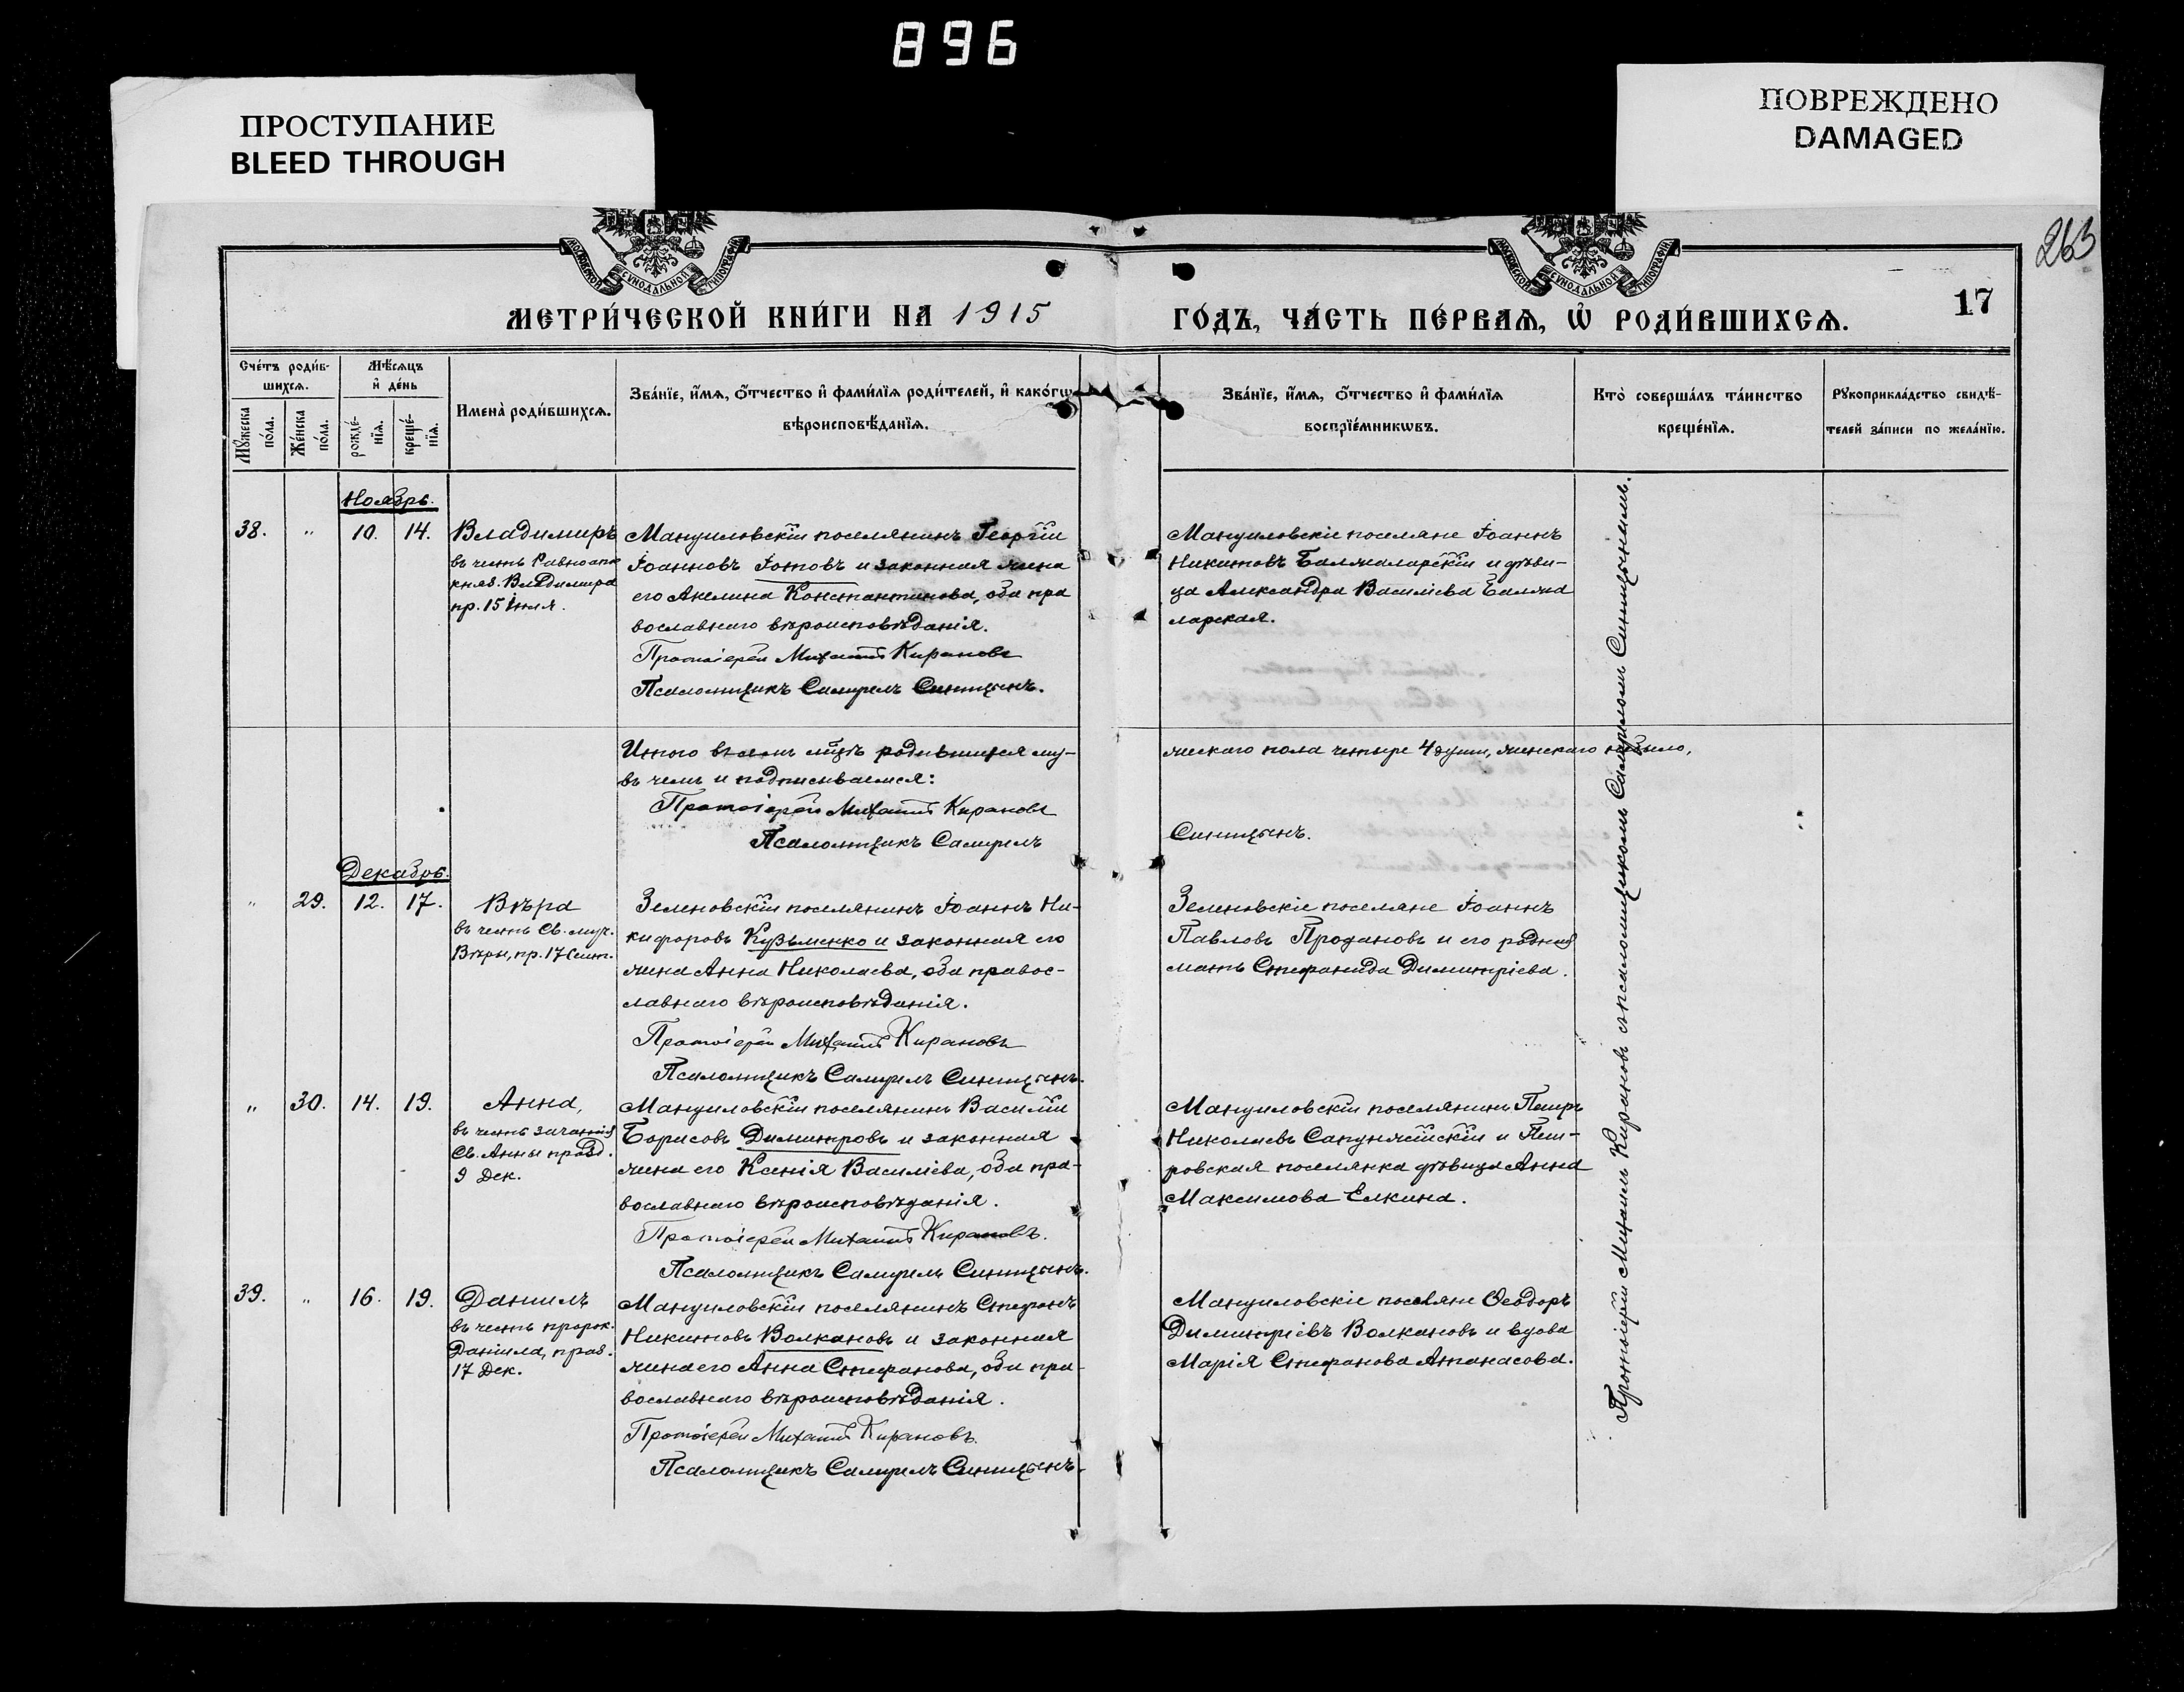 896
ПРОСТУПАНИЕ
BLEED THROUGH
ПОВРЕЖДЕНО
DAMAGED
263
МОСКОВСКОЙ СѴНОДАЛЬНОЙ ТИПОГРАФІИ
МОСКОВСКОЙ СѴНОДАЛЬНОЙ ТИПОГРАФІИ
17
МЕТРИ́ЧЕСКОЙ КНИ́ГИ НА 1915 ГО́ДЪ, ЧА́СТЬ ПЕ́РВАѦ, Ѡ҆ РОДИ́ВШИХСѦ.
Сче́тъ роди́в-
шихсѧ.
Мꙋ́жеска
по́ла.
Же́нска
по́ла.
Мѣ́сѧцъ
и҆ де́нь
рожде́-
нїѧ.
креще́-
нїѧ.
Имена̀ роди́вшихсѧ.
Зва́нїе, и҆́мѧ, ѻ҆́тчество и҆ фами́лїѧ роди́телей, и҆ како́гѡ
вѣроисповѣ́данїѧ.
Зва́нїе, и҆́мѧ, ѻ҆́тчество и҆ фами́лїѧ
воспрїе́мникѡвъ.
Кто̀ соверша́лъ та́инство
креще́нїѧ.
Рꙋкоприкла́дство свидѣ́-
телей за́писи по жела́нїю.
Ноябрь.
38. " 10. 14. Владимиръ
въ честь Равноап
княз. Владимира
пр. 15 Іюля.
Мануиловскій поселянинъ Георгій
Іоанновъ Іотовъ и законная жена
его Акелина Константинова, оба пра
вославнаго вѣроисповѣданія.
Протоіерей Михаилъ Кирановъ
Псаломщикъ Самуилъ Синицынъ.
Мануиловскіе поселяне Іоаннъ
Никитовъ Балжаларскій и дѣви-
ца Александра Василіева Балжа
ларская.
Итого въ семъ мѣсяцѣ родившихся му-
жескаго пола четыре 4 души, женскаго не было,
въ чемъ и подписываемся:
Протоіерей Михаилъ Кирановъ
Псаломщикъ Самуилъ
Синицынъ.
Декабрь.
" 29. 12. 17. Вѣра
въ честь Св. муч.
Вѣры, пр. 17 Сент.
Зеленовскій поселянинъ Іоаннъ Ни-
кифоровъ Кузьменко и законная его
жена Анна Николаева, оба правос-
лавнаго вѣроисповѣданія.
Протоіерей Михаилъ Кирановъ
Псаломщикъ Самуилъ Синицынъ.
Зеленовскіе поселяне Іоаннъ
Павловъ Продановъ и его родная
мать Стефанида Димитріева.
" 30. 14. 19. Анна,
въ честь зачатія
Св. Анны правд.
9 Дек.
Мануиловскій поселянинъ Василій
Борисовъ Димитровъ и законная
жена его Ксенія Василіева, оба пра-
вославнаго вѣроисповѣданія.
Протоіерей Михаилъ Кирановъ.
Псаломщикъ Самуилъ Синицынъ.
Мануиловскій поселянинъ Петръ
Николаевъ Сапунжійскій и Пет-
ровская поселянка дѣвица Анна
Максимова Елкина.
39. " 16. 19. Даниилъ
въ честь пророк.
Даніила, праз.
17 Дек.
Мануиловскій поселянинъ Стефанъ
Никитовъ Волкановъ и законная
жена его Анна Стефанова, оба пра-
вославнаго вѣроисповѣданія.
Протоіерей Михаилъ Кирановъ.
Псаломщикъ Самуилъ Синицынъ.
Мануиловскіе поселяне Ѳеодоръ
Димитріевъ Волкановъ и вдова
Марія Стефанова Атанасова.
Протоіерей Михаилъ Кирановъ съ псаломщикомъ Самуиломъ Синицынымъ.